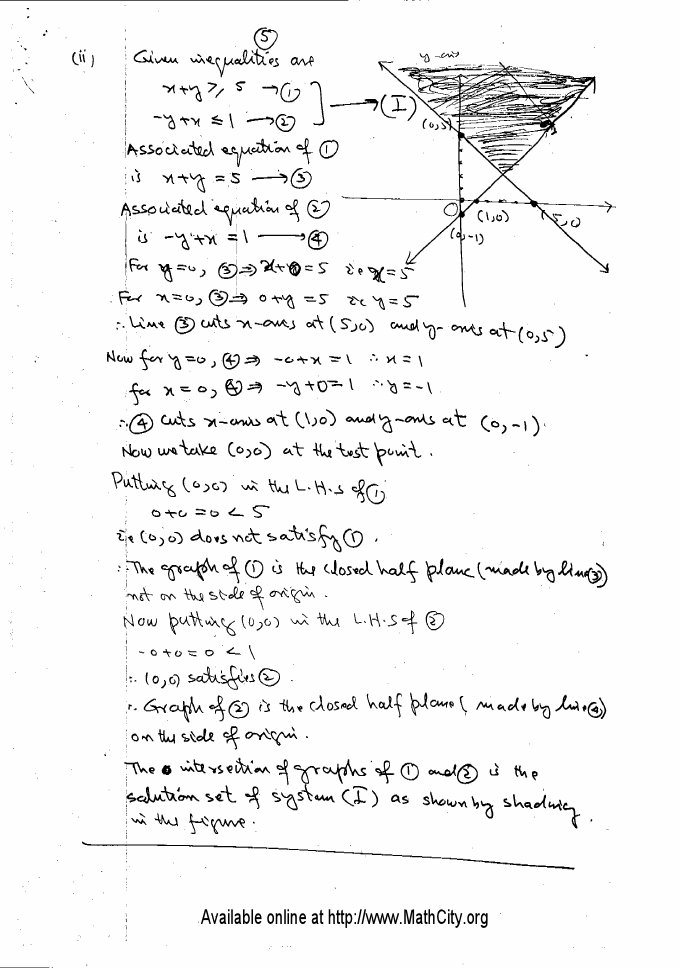 ⑤
(ii) Given inequalities are
x+y ≥ 5 → ①
-y+x ≤ 1 → ②
→ (I)
Associated equation of ①
is x+y = 5 → ③
Associated equation of ②
is -y+x = 1 → ④
For y=0, ③ ⇒ x+0=5 ie x=5
For x=0, ③ ⇒ 0+y=5 ie y=5
∴ Line ③ cuts x-axis at (5,0) and y-axis at (0,5)
Now for y=0, ④ ⇒ -0+x=1 ∴ x=1
for x=0, ④ ⇒ -y+0=1 ∴ y=-1
∴ ④ cuts x-axis at (1,0) and y-axis at (0,-1).
Now we take (0,0) at the test point.
Putting (0,0) in the L.H.s of ①
0+0=0 < 5
ie (0,0) does not satisfy ①.
∴ The graph of ① is the closed half plane (made by line ③)
not on the side of origin.
Now putting (0,0) in the L.H.S of ②
-0+0=0 < 1
∴ (0,0) satisfies ②.
∴ Graph of ② is the closed half plane (made by line ④)
on the side of origin.
The intersection of graphs of ① and ② is the
solution set of system (I) as shown by shading
in the figure.
y-axis
(0,5)
O
(1,0)
(5,0)
(0,-1)
Available online at http://www.MathCity.org